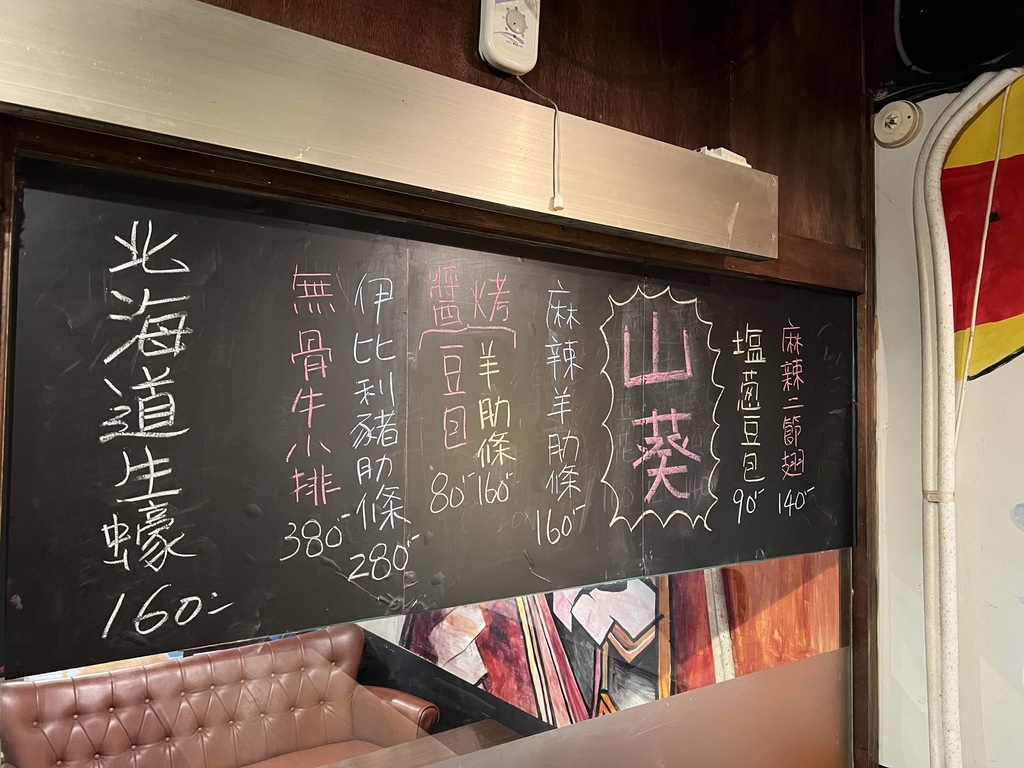 麻辣二節翅 140-
塩蔥豆包 90-
山葵
麻辣羊肋條 160-
醬烤
羊肋條 160-
豆包 80-
伊比利豬肋條 280-
無骨牛小排 380-
北海道生蠔 160-